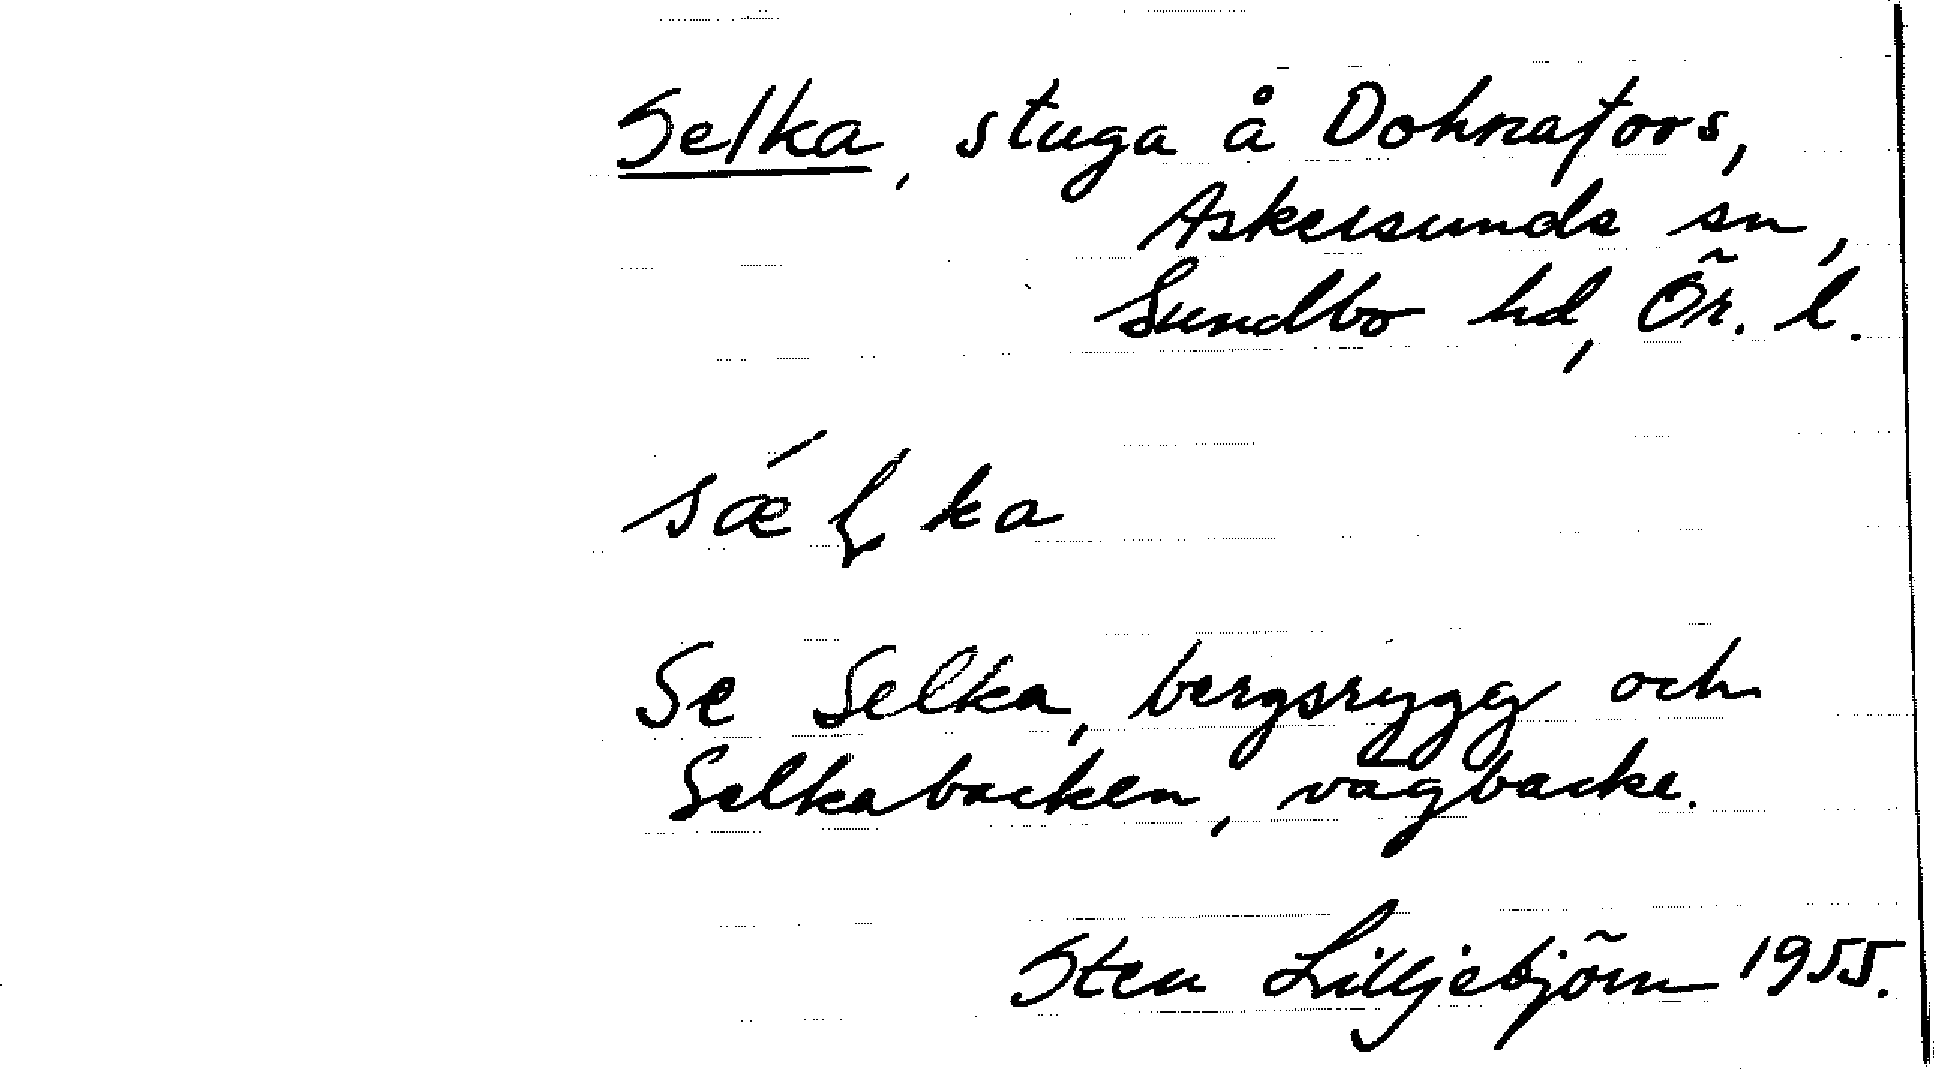 Selka, stuga å Dohnafors,
Askersunds sn,
Sundbo hd, Ör. l.
sǽɭka
Se Selka, bergsrygg och
Selkabacken, vägbacke.
Sten Lilljebjörn 1955.